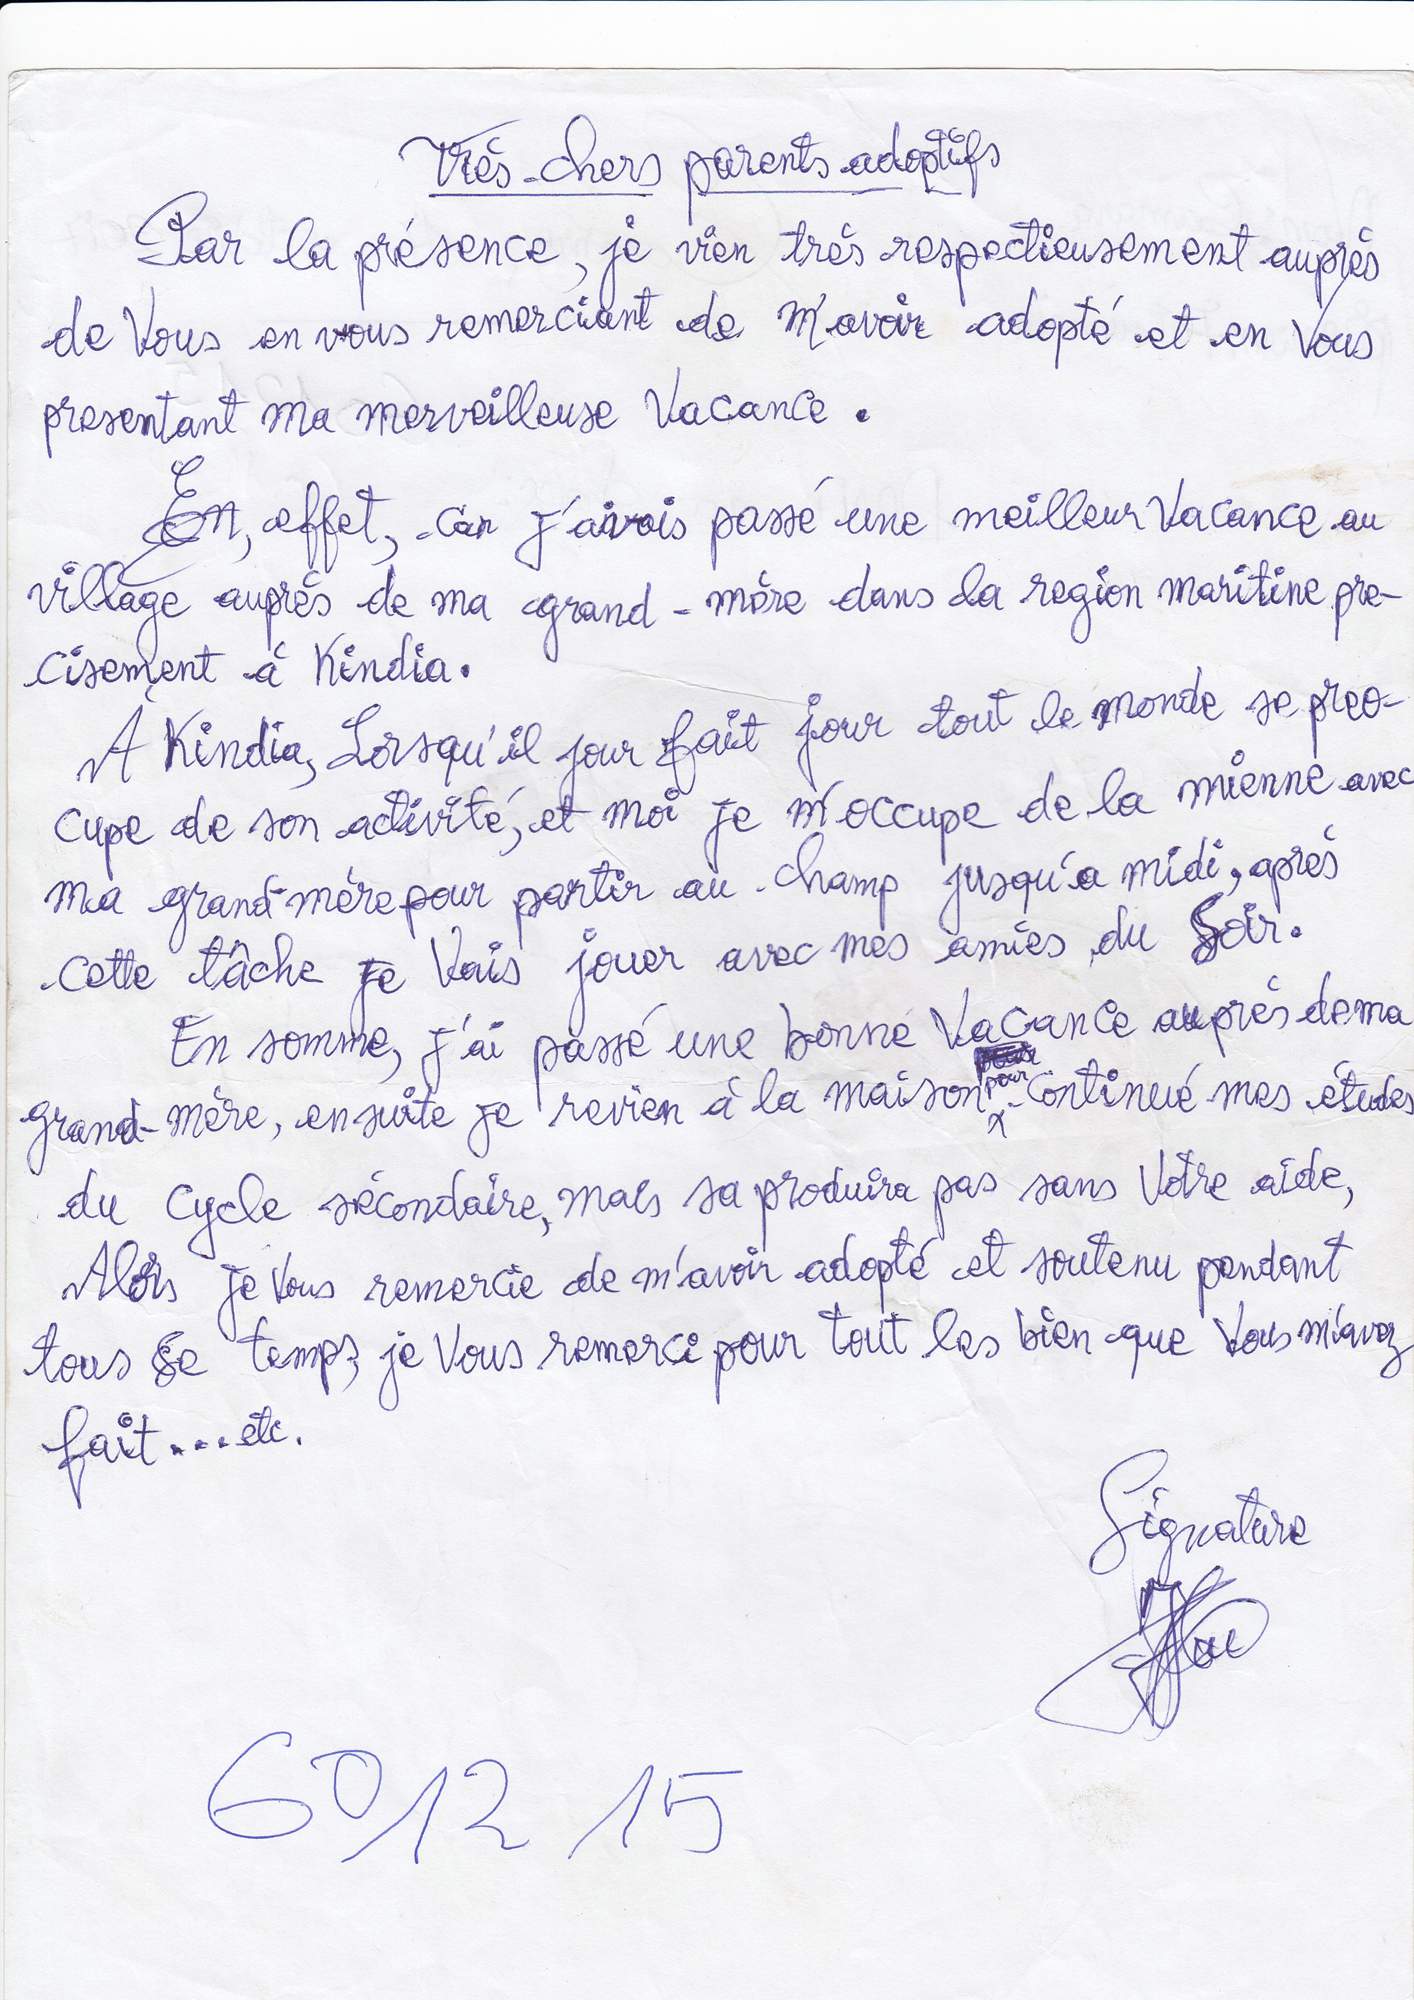 Très chers parents adoptifs
Par la présence, je vien très respectieusement auprès
de Vous en vous remerciant de m'avoir adopté et en Vous
presentant ma merveilleuse Vacance.
En, effet, car j'avais passé une meilleur Vacance au
village auprès de ma grand-mère dans la region maritine pre-
cisement à Kindia.
À Kindia, Lorsqu'il jour fait jour tout le monde se preo-
cupe de son activité, et moi je m'occupe de la mienne avec
ma grand-mère pour partir au champ jusqu'a midi, après
cette tâche je Vais jouer avec mes amies du Soir.
En somme, j'ai passé une bonne Vacance auprès de ma
grand-mère, ensuite je revien à la maison pour continué mes études
du cycle sécondaire, mais sa produira pas sans Votre aide,
Alors je Vous remercie de m'avoir adopté et soutenu pendant
tous se temps, je Vous remerci pour tout les bien que Vous m'avez
fait....etc.
Signature
601215